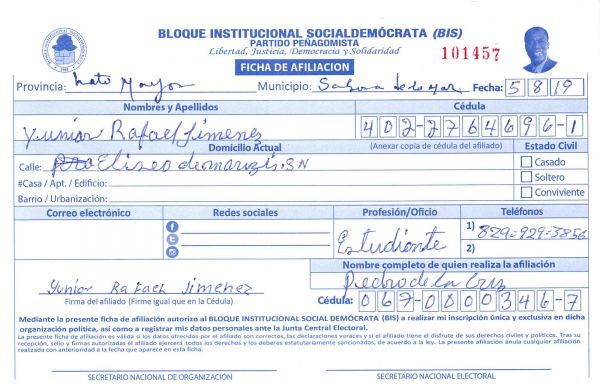 BLOQUE INSTITUCIONAL SOCIALDEMÓCRATA (BIS)
PARTIDO PEÑAGOMISTA
Libertad, Justicia, Democracia y Solidaridad
101457
FICHA DE AFILIACION
Provincia: Hato Mayor Municipio: Sabana de la Mar Fecha: 5 8 19
Nombres y Apellidos Cédula
Yunior Rafael Jimenez 402-2764696-1
Domicilio Actual (Anexar copia de cédula del afiliado) Estado Civil
Calle: Eliseo demarizi SN Casado
#Casa / Apt. / Edificio: Soltero
Barrio / Urbanización: Conviviente
Correo electrónico Redes sociales Profesión/Oficio Teléfonos
Estudiante 1) 829-929-3856
2)
Nombre completo de quien realiza la afiliación
Yunior Rafael Jimenez Pedro de la Cruz
Firma del afiliado (Firme igual que en la Cédula) Cédula: 067-0000346-7
Mediante la presente ficha de afiliación autorizo al BLOQUE INSTITUCIONAL SOCIAL DEMÓCRATA (BIS) a realizar mi inscripción única y exclusiva en dicha
organización política, así como a registrar mis datos personales ante la Junta Central Electoral.
La presente ficha de afiliación es válida si los datos ofrecidos por el afiliado son correctos, las declaraciones veraces y si el afiliado tiene el disfrute de sus derechos civiles y políticos. Tras su
recepción, sello y firmas autorizadas el afiliado ejercerá todos los derechos y los deberes estatutariamente sancionados, de acuerdo a la ley. La presente afiliación anula cualquier afiliación
realizada con anterioridad a la fecha que aparece en esta ficha.
SECRETARIO NACIONAL DE ORGANIZACIÓN SECRETARIO NACIONAL ELECTORAL